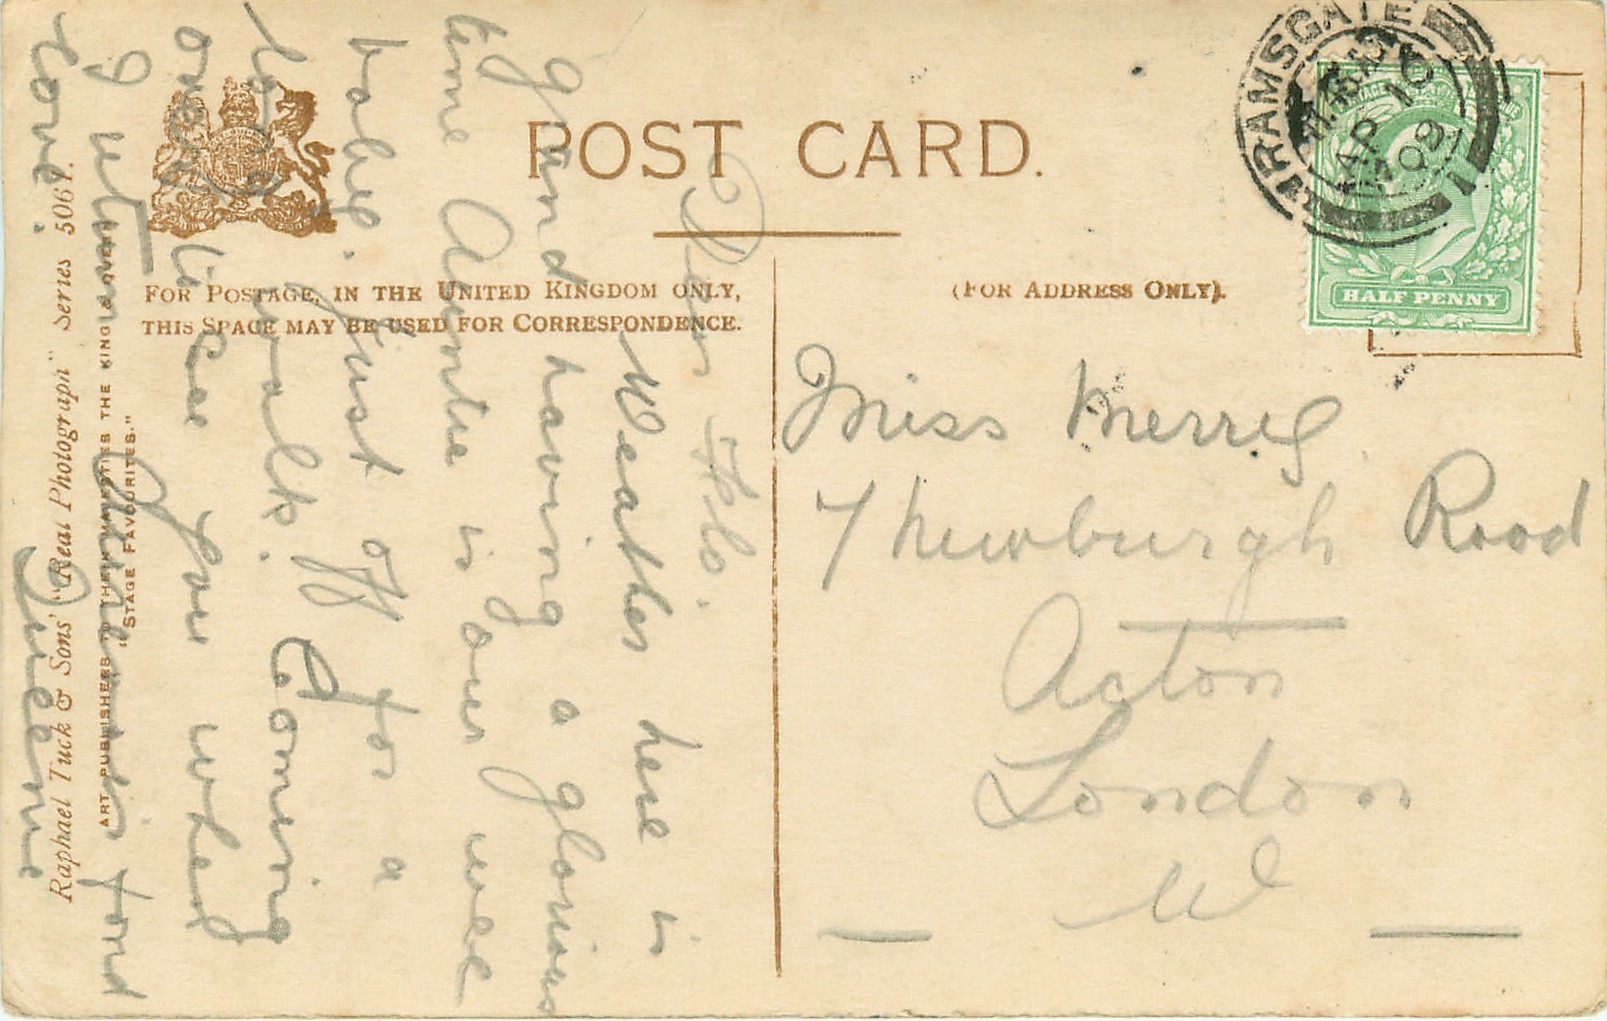 POST CARD.
FOR POSTAGE, IN THE UNITED KINGDOM ONLY,
THIS SPACE MAY BE USED FOR CORRESPONDENCE.
(FOR ADDRESS ONLY).
RAMSGATE
AP 10
09
HALF PENNY
Dear Flo.
Weather here is
grand having a glorious
time Auntie is our wee
babe. Just off for a
long walk. Coming
over to see you when
I return. Dearest fond
love.
Queenie
Miss Merrey
7 Newburgh Road
Acton
London
W
Raphael Tuck & Sons' "Real Photograph" Series 5061.
ART PUBLISHERS TO THEIR MAJESTIES THE KING & QUEEN
"STAGE FAVOURITES."